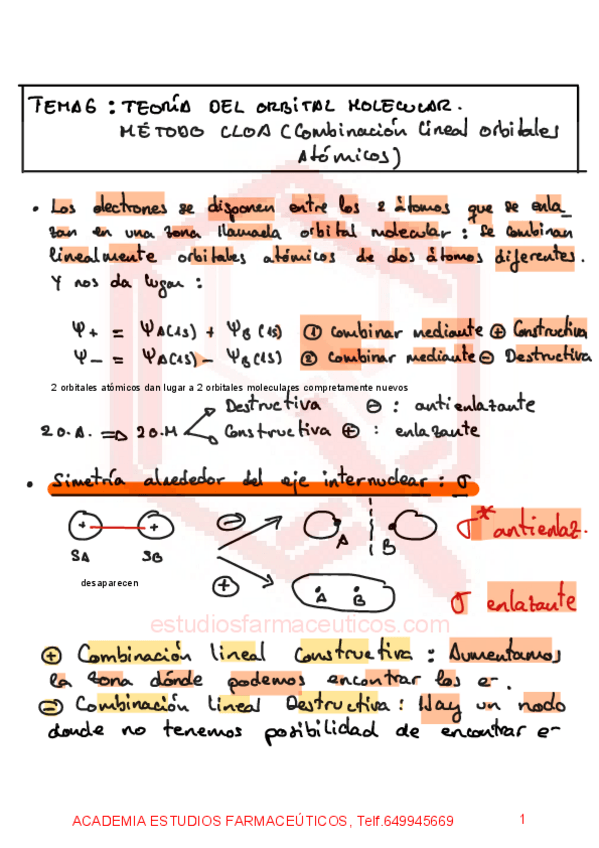 TEMA 6 : TEORÍA DEL ORBITAL MOLECULAR.
MÉTODO CLOA (Combinación lineal orbitales
Atómicos)
• Los electrones se disponen entre los 2 átomos que se enla_
zan en una zona llamada orbital molecular : Se combinan
linealmente orbitales atómicos de dos átomos diferentes.
Y nos da lugar :
Ψ+ = ΨA(1S) + ΨB(1S) ① Combinar mediante ⊕ Constructiva
Ψ− = ΨA(1S) − ΨB(1S) ② Combinar mediante ⊖ Destructiva
2 orbitales atómicos dan lugar a 2 orbitales moleculares compretamente nuevos
Destructiva ⊖ : antienlazante
2 O.A. ⇒ 2 O.M Constructiva ⊕ : enlazante
• Simetría alrededor del eje internuclear : σ
+ + ⊖ A B σ* antienlaz.
SA SB
desaparecen ⊕ A B σ enlazante
estudiosfarmaceuticos.com
⊕ Combinación lineal Constructiva : Aumentamos
la zona dónde podemos encontrar los e-.
⊖ Combinación lineal Destructiva : Hay un nodo
donde no tenemos posibilidad de encontrar e-
ACADEMIA ESTUDIOS FARMACEÚTICOS, Telf.649945669 1